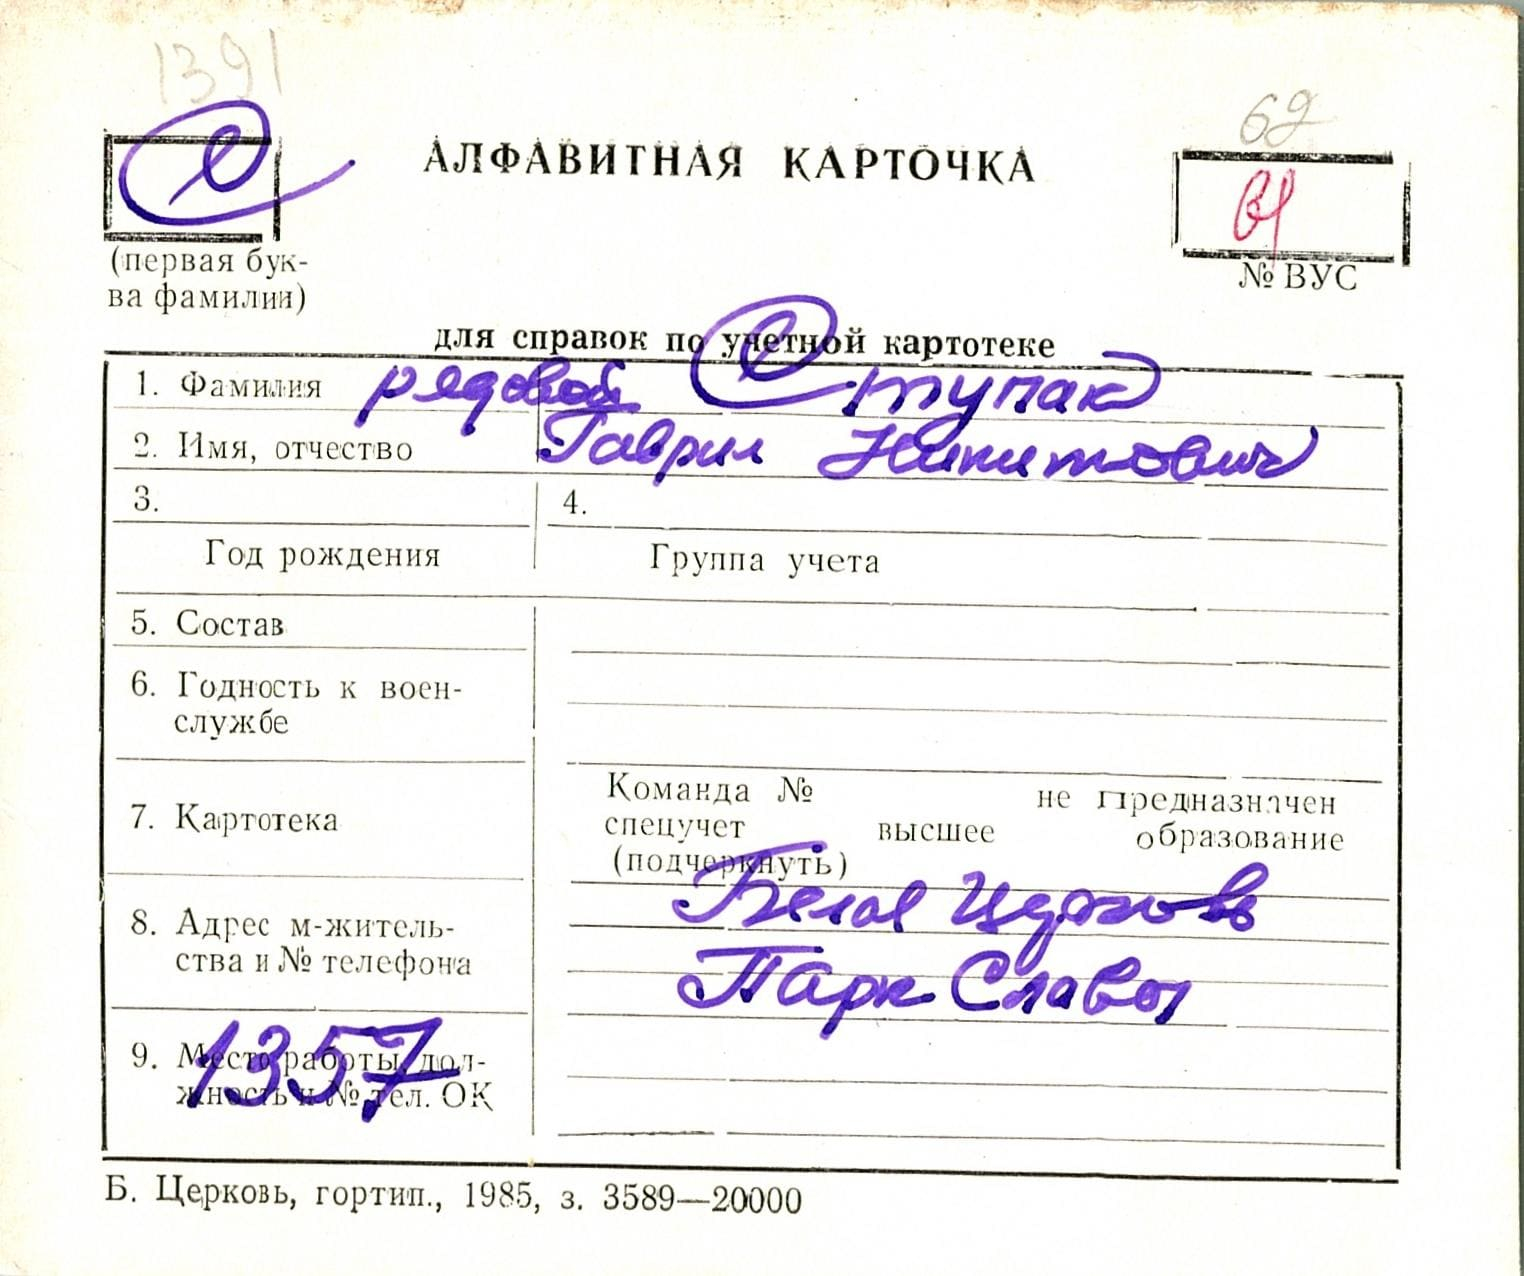 1391
С
62
АЛФАВИТНАЯ КАРТОЧКА
(первая бук-
ва фамилии)
№ ВУС
для справок по учетной картотеке
1. Фамилия рядовой Ступак
2. Имя, отчество Гаврил Никитович
3. 4.
Год рождения Группа учета
5. Состав
6. Годность к воен-
службе
7. Картотека
Команда № не предназначен
спецучет высшее образование
(подчеркнуть)
8. Адрес м-житель-
ства и № телефона
Белая Церковь
Парк Славы
9. Место работы, дол-
жность и № тел. ОК
1357
Б. Церковь, гортип., 1985, з. 3589—20000